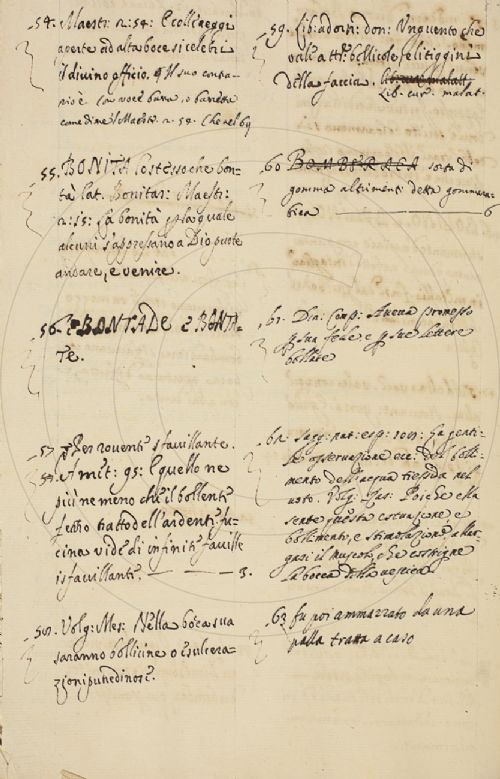 54. Maestr: 2: 54: E colli reggi
aperte ad alta boce si celebri
il divino officio. ¶ Il suo contra-
rio è
come dire Maestr. 2. 59. Che nel 69
55. BONITÀ Lo stesso che bon-
tà lat. Bonitas: Maestr:
2: 15: La bonità p la quale
alcuni s'appressano a Dio puote
andare, e venire.
56. BONTADE e BONTA-
TE.
57. Per roventi sfavillante.
Amet: 95: E quello ne
più ne meno che 'l bollente
ferro tratto dell'ardenti fu-
cina vidi di infinite faville
isfavillanti. — — — 3.
58. Volg: Mes: Nella bocca sua
saranno bollicine o esulcera-
zioni
59. Lib: adorn: don: Unguento che
vale a tt: bellicole, e litiggini
della faccia.
Lib. cur. malat.
60 BOMBERACA sorta di
gomma altrimenti detta gommara-
bica — 6
61. Din: Comp: Aveva promesso
p sua fede e p sue lettere
bollate
62. Sagg: nat: esp: La genti-
le osservazione ecc. del bolli-
mento dell'acqua tiepida nel
voto. Volg: Mes: Poiche ella
sente questa estuazione e
bollimento, e stimolazione allar-
gasi il muscolo, che costrigne
la bocca della vescica
63 fu poi ammazzato da una
palla tratta a caso